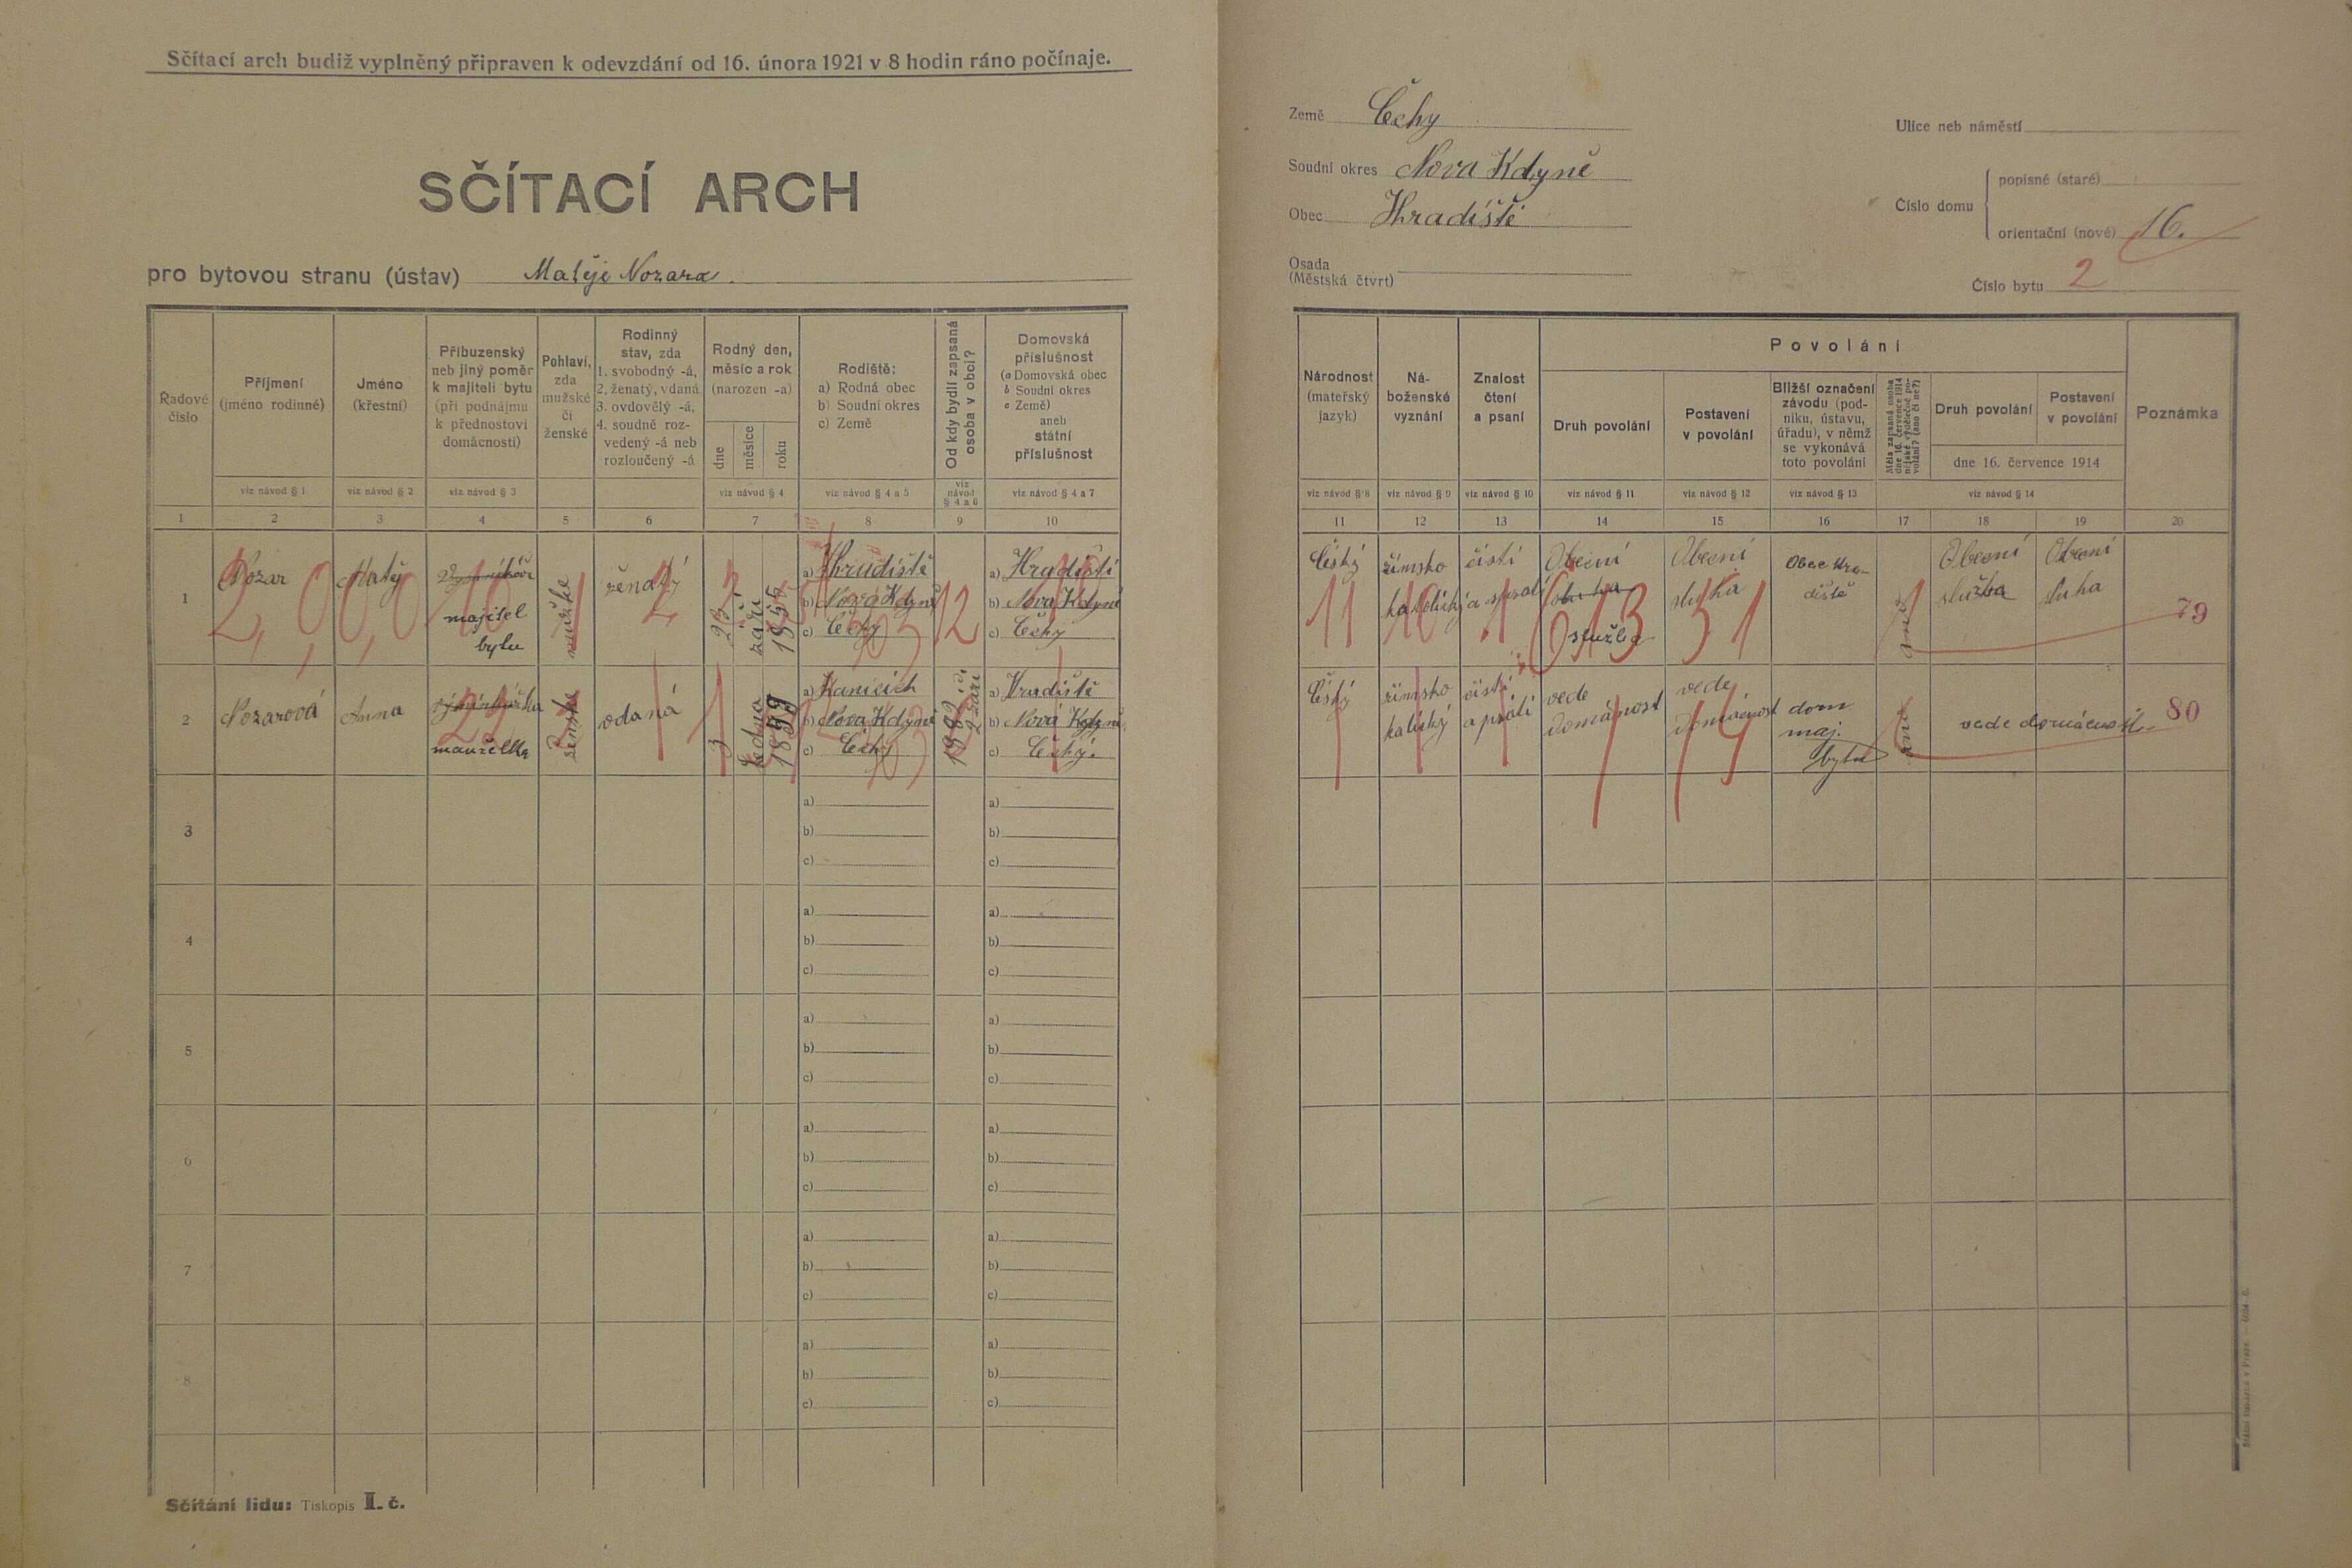 Sčítací arch budiž vyplněný připraven k odevzdání od 16. února 1921 v 8 hodin ráno počínaje.
SČÍTACÍ ARCH
pro bytovou stranu (ústav) Matěje Nozara.
Země Čechy
Soudní okres Nova Kdyně
Obec Hradiště
Osada
(Městská čtvrt)
Ulice neb náměstí
Číslo domu
popisné (staré)
orientační (nové) 16.
Číslo bytu 2
Řadové číslo
Příjmení
(jméno rodinné)
viz návod § 1
Jméno
(křestní)
viz návod § 2
Příbuzenský
neb jiný poměr
k majiteli bytu
(při podnájmu
k přednostovi
domácnosti)
viz návod § 3
Pohlaví,
zda
mužské
či
ženské
Rodinný
stav, zda
1. svobodný -á,
2. ženatý, vdaná
3. ovdovělý -á,
4. soudně roz-
vedený -á neb
rozloučený -á
Rodný den,
měsíc a rok
(narozen -a)
dne
měsíce
roku
viz návod § 4
Rodiště:
a) Rodná obec
b) Soudní okres
c) Země
viz návod § 4 a 5
Od kdy bydlí zapsaná
osoba v obci?
viz
návod
§ 4 a 6
Domovská
příslušnost
(a Domovská obec
b Soudní okres
c Země)
aneb
státní
příslušnost
viz návod § 4 a 7
1 2 3 4 5 6 7 8 9 10
Národnost
(mateřský
jazyk)
viz návod § 8
Ná-
boženské
vyznání
viz návod § 9
Znalost
čtení
a psaní
viz návod § 10
Povolání
Druh povolání
viz návod § 11
Postavení
v povolání
viz návod § 12
Bližší označení
závodu (pod-
niku, ústavu,
úřadu), v němž
se vykonává
toto povolání
viz návod § 13
Měla zapsaná osoba
dne 16. července 1914
nějaké výdělečné po-
volání? (ano či ne?)
Druh povolání
Postavení
v povolání
dne 16. července 1914
viz návod § 14
Poznámka
11 12 13 14 15 16 17 18 19 20
1
Nozar
Matěj
majitel
bytu
mužské
ženatý
23
září
a) Hradiště
b) Nová Kdyně
c) Čechy
12
a) Hradiště
b) Nova Kdyně
c) Čechy
Český
římsko
katolický
čísti
a psáti
Obecní
služba
Obecní
sluha
Obec Hra-
diště
ano
Obecní
služba
Obecní
sluha
79
2
Nozarová
Anna
manželka
ženské
vdaná
3
ledna
1859
a) Kanicích
b) Nova Kdyně
c) Čechy
září
a) Hradiště
b) Nová Kdyně
c) Čechy.
Český
římsko
katický
čísti
a psáti
vede
domácnost
vede
domácnost
dom
maj.
bytu
ano
vede domácnost
80
3
a)
b)
c)
a)
b)
c)
4
a)
b)
c)
a)
b)
c)
5
a)
b)
c)
a)
b)
c)
6
a)
b)
c)
a)
b)
c)
7
a)
b)
c)
a)
b)
c)
8
a)
b)
c)
a)
b)
c)
Sčítání lidu: Tiskopis I. č.